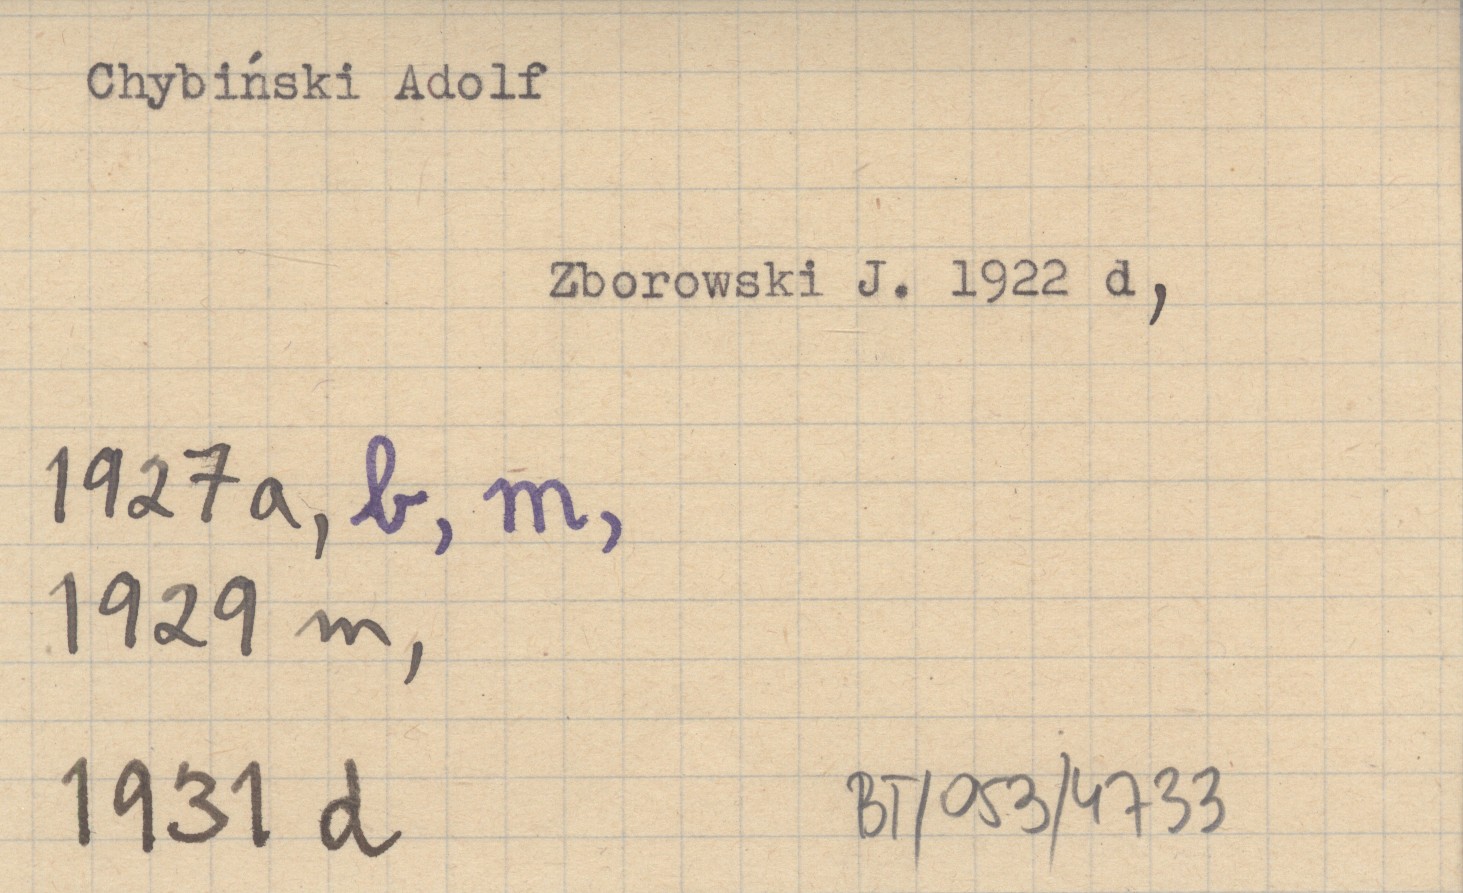 Chybiński Adolf
Zborowski J. 1922 d,
1927a, b, m,
1929 m,
1931 d
BT/053/4733